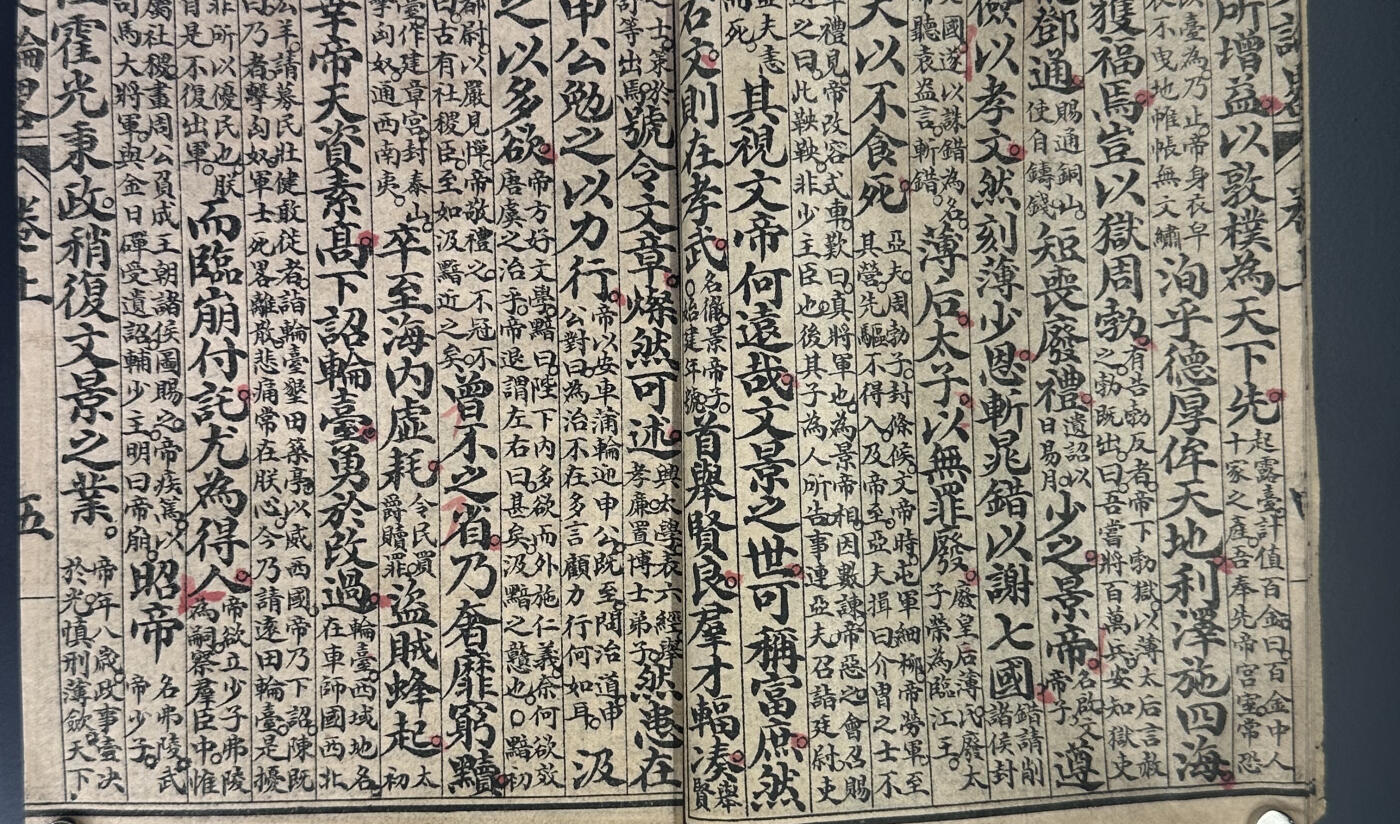 所增益以敦樸為天下先起露臺計值百金曰百金中人十家之產吾奉先帝宮室常恐
臺為乃止帝身衣皁衣不曳地帷帳無文繡洵乎德厚侔天地利澤施四海
獲福焉豈以獄周勃有告勃反者帝下勃獄以薄太后言赦之勃既出曰吾嘗將百萬兵安知獄吏
鄧通賜通銅山使自鑄錢短喪廢禮遺詔以日易月少之景帝名啟文帝子遵
儉以孝文然刻薄少恩斬晁錯以謝七國錯請削諸侯封
國遂以誅錯為名帝聽袁盎言斬錯薄后太子以無罪廢廢皇后薄氏廢太子榮為臨江王
夫以不食死亞夫周勃子封條侯文帝時屯軍細柳帝勞軍至其營先驅不得入及帝至亞夫揖曰介冑之士不
禮見帝改容式車歎曰真將軍也為景帝相因數諫帝惡之會召賜之曰此鞅鞅非少主臣也後其子為人所告事連亞夫召詣廷尉吏
亞夫恚而死其視文帝何遠哉文景之世可稱富庶然
右文則在孝武名徹景帝子○始建年號首舉賢良羣才輻湊舉賢
之士策於舒等出焉號令文章燦然可述興太學表六經舉孝廉置博士弟子然患在
申公勉之以力行帝以安車蒲輪迎申公既至問治道申公對曰為治不在多言顧力行何如耳汲
之以多欲帝方好文學黯曰陛下內多欲而外施仁義奈何欲效唐虞之治乎帝退謂左右曰甚矣汲黯之戇也○黯初
都尉以嚴見憚帝敬禮之不冠不曰古有社稷臣至如汲黯近之矣曾不之省乃奢靡窮黷
臺作建章宮封泰山擊匈奴通西南夷卒至海內虛耗令民買爵贖罪盜賊蜂起太初
幸帝天資素高下詔輪臺勇於改過輪臺西域地名在車師國西北
公羊請募民壯健敢徙者詣輪臺墾田築亭以威西國帝乃下詔陳既曰乃者擊匈奴軍士死畧離散悲痛常在朕心今乃請遠田輪臺是擾
非所以優民也朕自是不復出軍而臨崩付託尤為得人帝欲立少子弗陵為嗣察羣臣中惟
屬社稷畫周公負成王朝諸侯圖賜之帝疾篤以司馬大將軍與金日磾受遺詔輔少主明日帝崩昭帝名弗陵武帝少子
霍光秉政稍復文景之業帝年八歲政事壹决於光慎刑薄斂天下
卷上 五